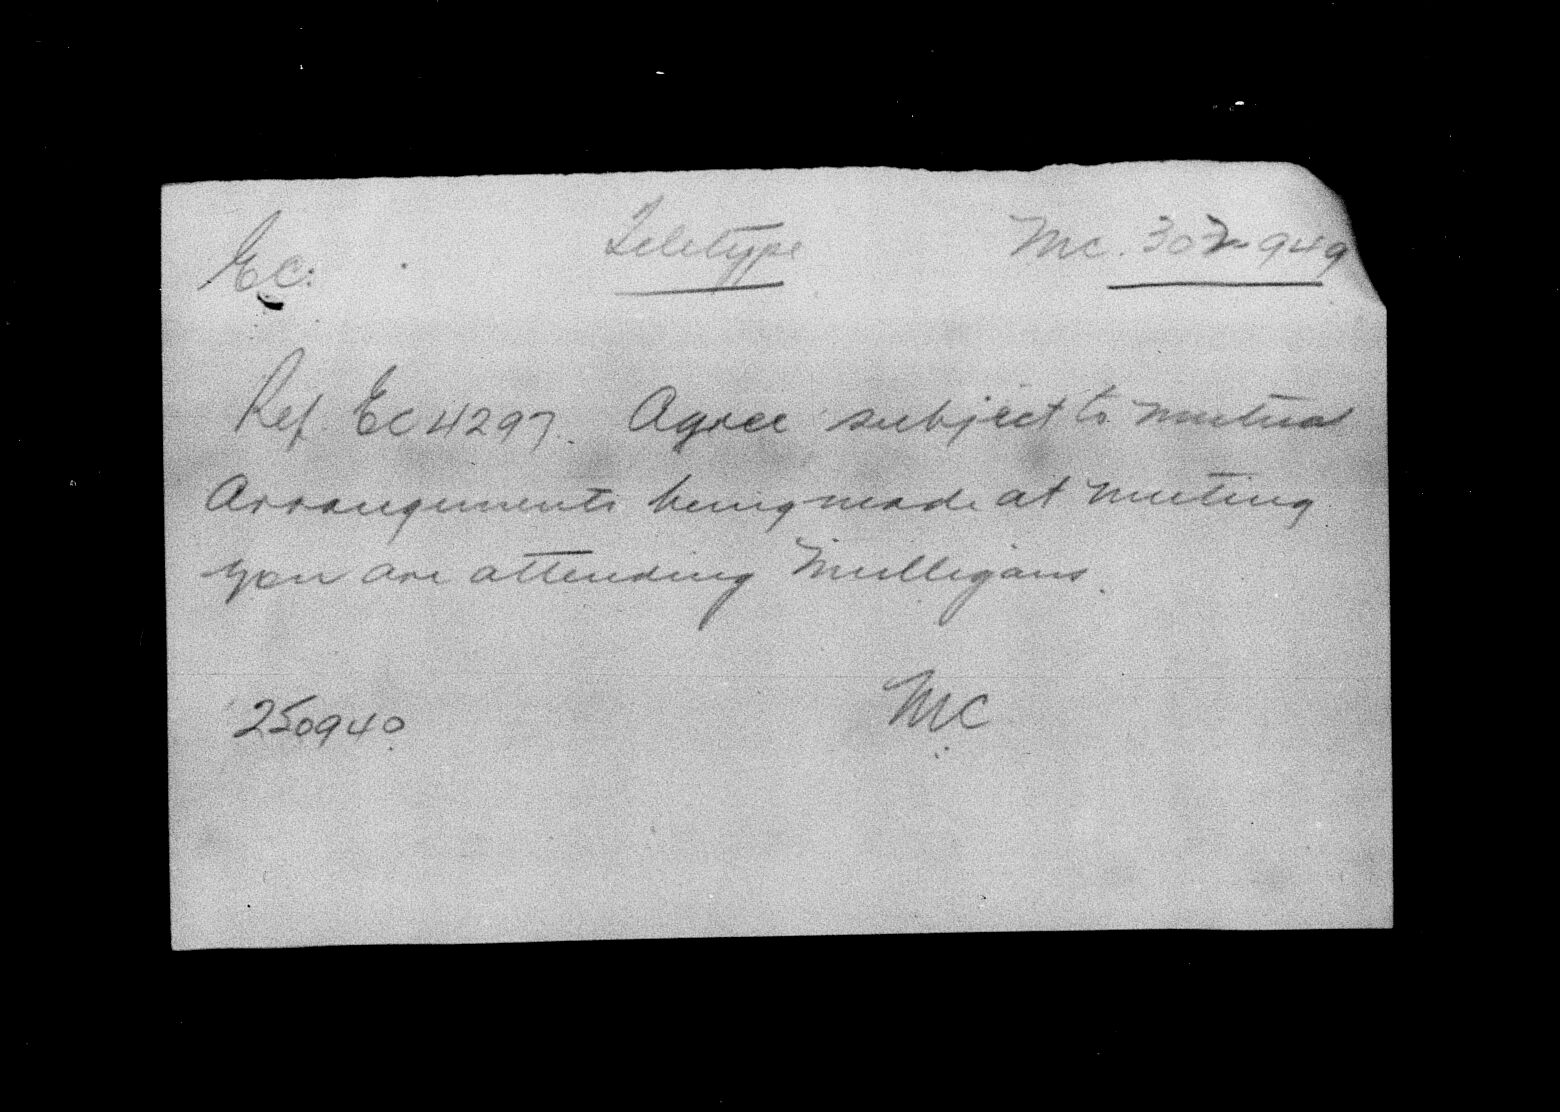 Ec. Teletype Mc. 302-949
Ref. Ec 4297. Agree subject to mutual
Arrangements being made at meeting
you are attending Mulligans.
250940 MC